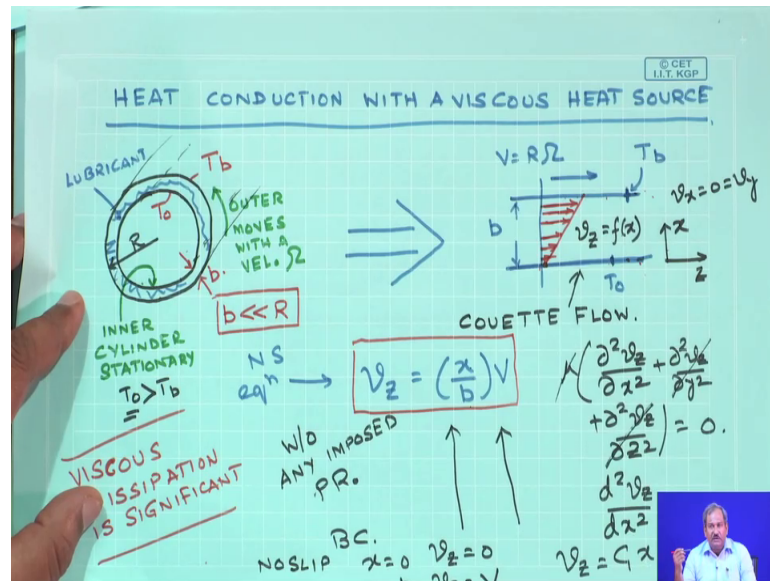 © CET
I.I.T. KGP
HEAT CONDUCTION WITH A VISCOUS HEAT SOURCE
LUBRICANT
T_b
T_0
R
b.
OUTER
MOVES
WITH A
VEL. Ω
b << R
INNER
CYLINDER
STATIONARY
T_0 > T_b
VISCOUS
ISSIPATION
IS SIGNIFICANT
V = RΩ
T_b
b
v_z = f(x)
T_0
v_x = 0 = v_y
x
z
COUETTE FLOW.
NS
eqⁿ → v_z = (x/b) V
μ(∂²v_z/∂x² + ∂²v_z/∂y²
+ ∂²v_z/∂z²) = 0.
d²v_z/dx²
W/O
ANY IMPOSED
PR.
BC.
NOSLIP x=0 v_z=0
v_z = C₁ x